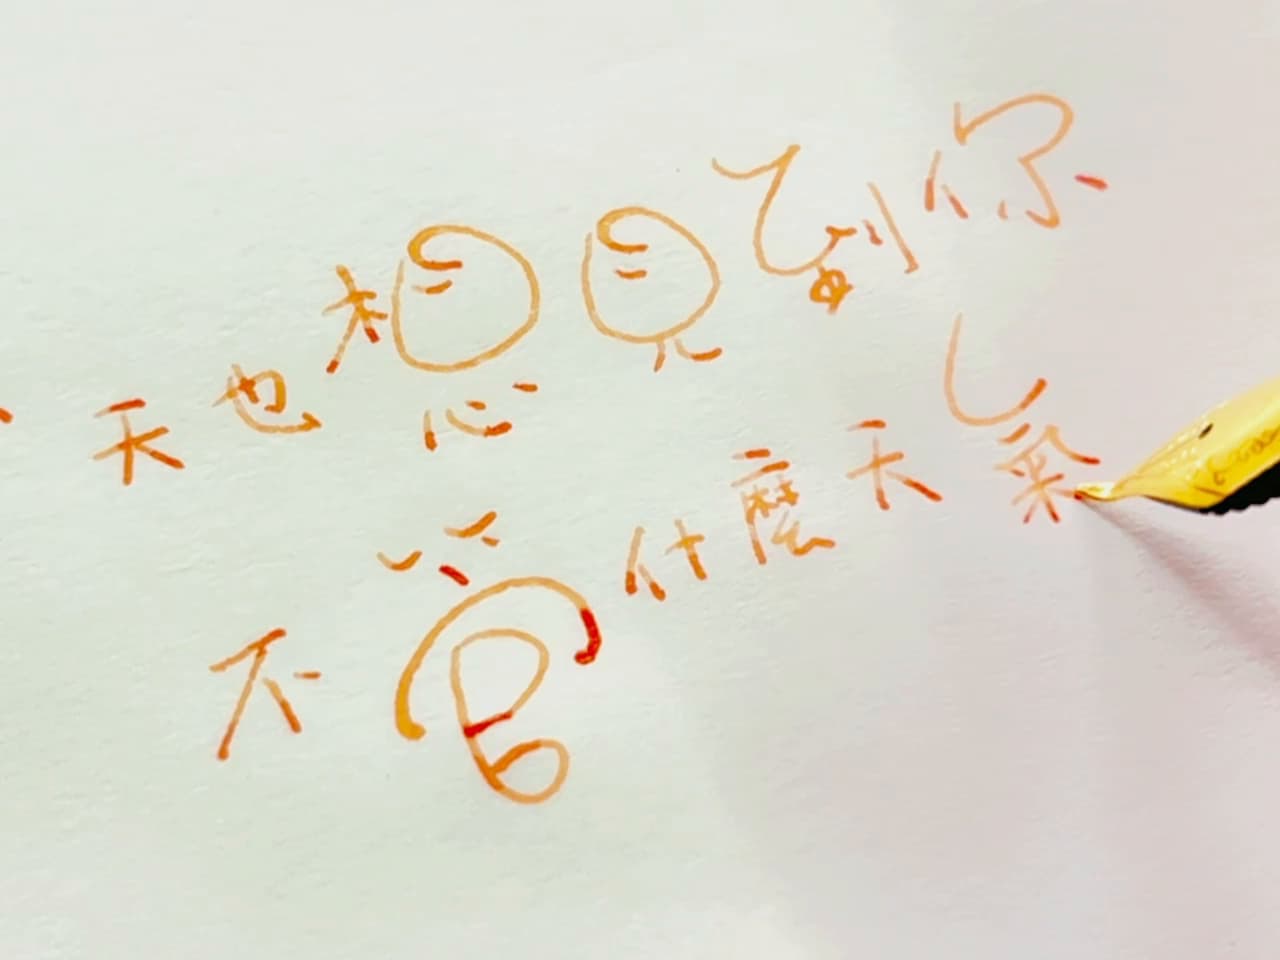 天也想見到你
不管什麼天氣